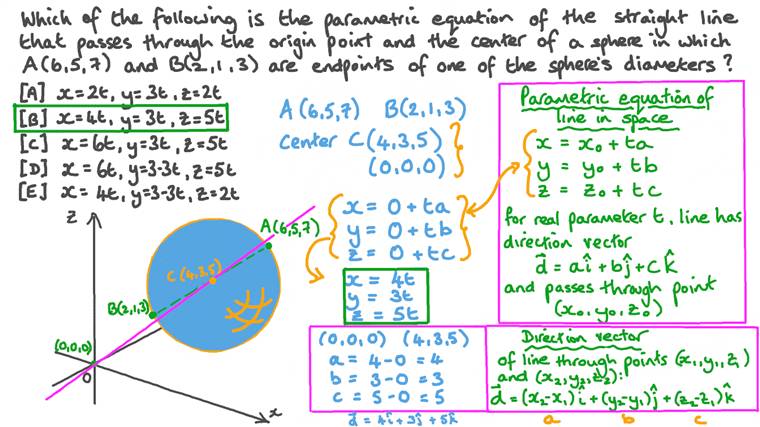 Which of the following is the parametric equation of the straight line
that passes through the origin point and the center of a sphere in which
A(6,5,7) and B(2,1,3) are endpoints of one of the sphere's diameters?
[A] x=2t, y=3t, z=2t
[B] x=4t, y=3t, z=5t
[C] x=6t, y=3t, z=5t
[D] x=6t, y=3-3t, z=5t
[E] x=4t, y=3-3t, z=2t
A(6,5,7) B(2,1,3)
center C(4,3,5)
(0,0,0)
x = 0+ta
y = 0+tb
z = 0+tc
x = 4t
y = 3t
z = 5t
Parametric equation of
line in space
x = x₀ + ta
y = y₀ + tb
z = z₀ + tc
for real parameter t, line has
direction vector
d⃗ = aî + bĵ + ck̂
and passes through point
(x₀, y₀, z₀)
z
A(6,5,7)
C(4,3,5)
B(2,1,3)
(0,0,0)
O
x
(0,0,0) (4,3,5)
a = 4-0 = 4
b = 3-0 = 3
c = 5-0 = 5
d⃗ = 4î + 3ĵ + 5k̂
Direction vector
of line through points (x₁,y₁,z₁)
and (x₂,y₂,z₂):
d⃗=(x₂-x₁)î+(y₂-y₁)ĵ+(z₂-z₁)k̂
a b c